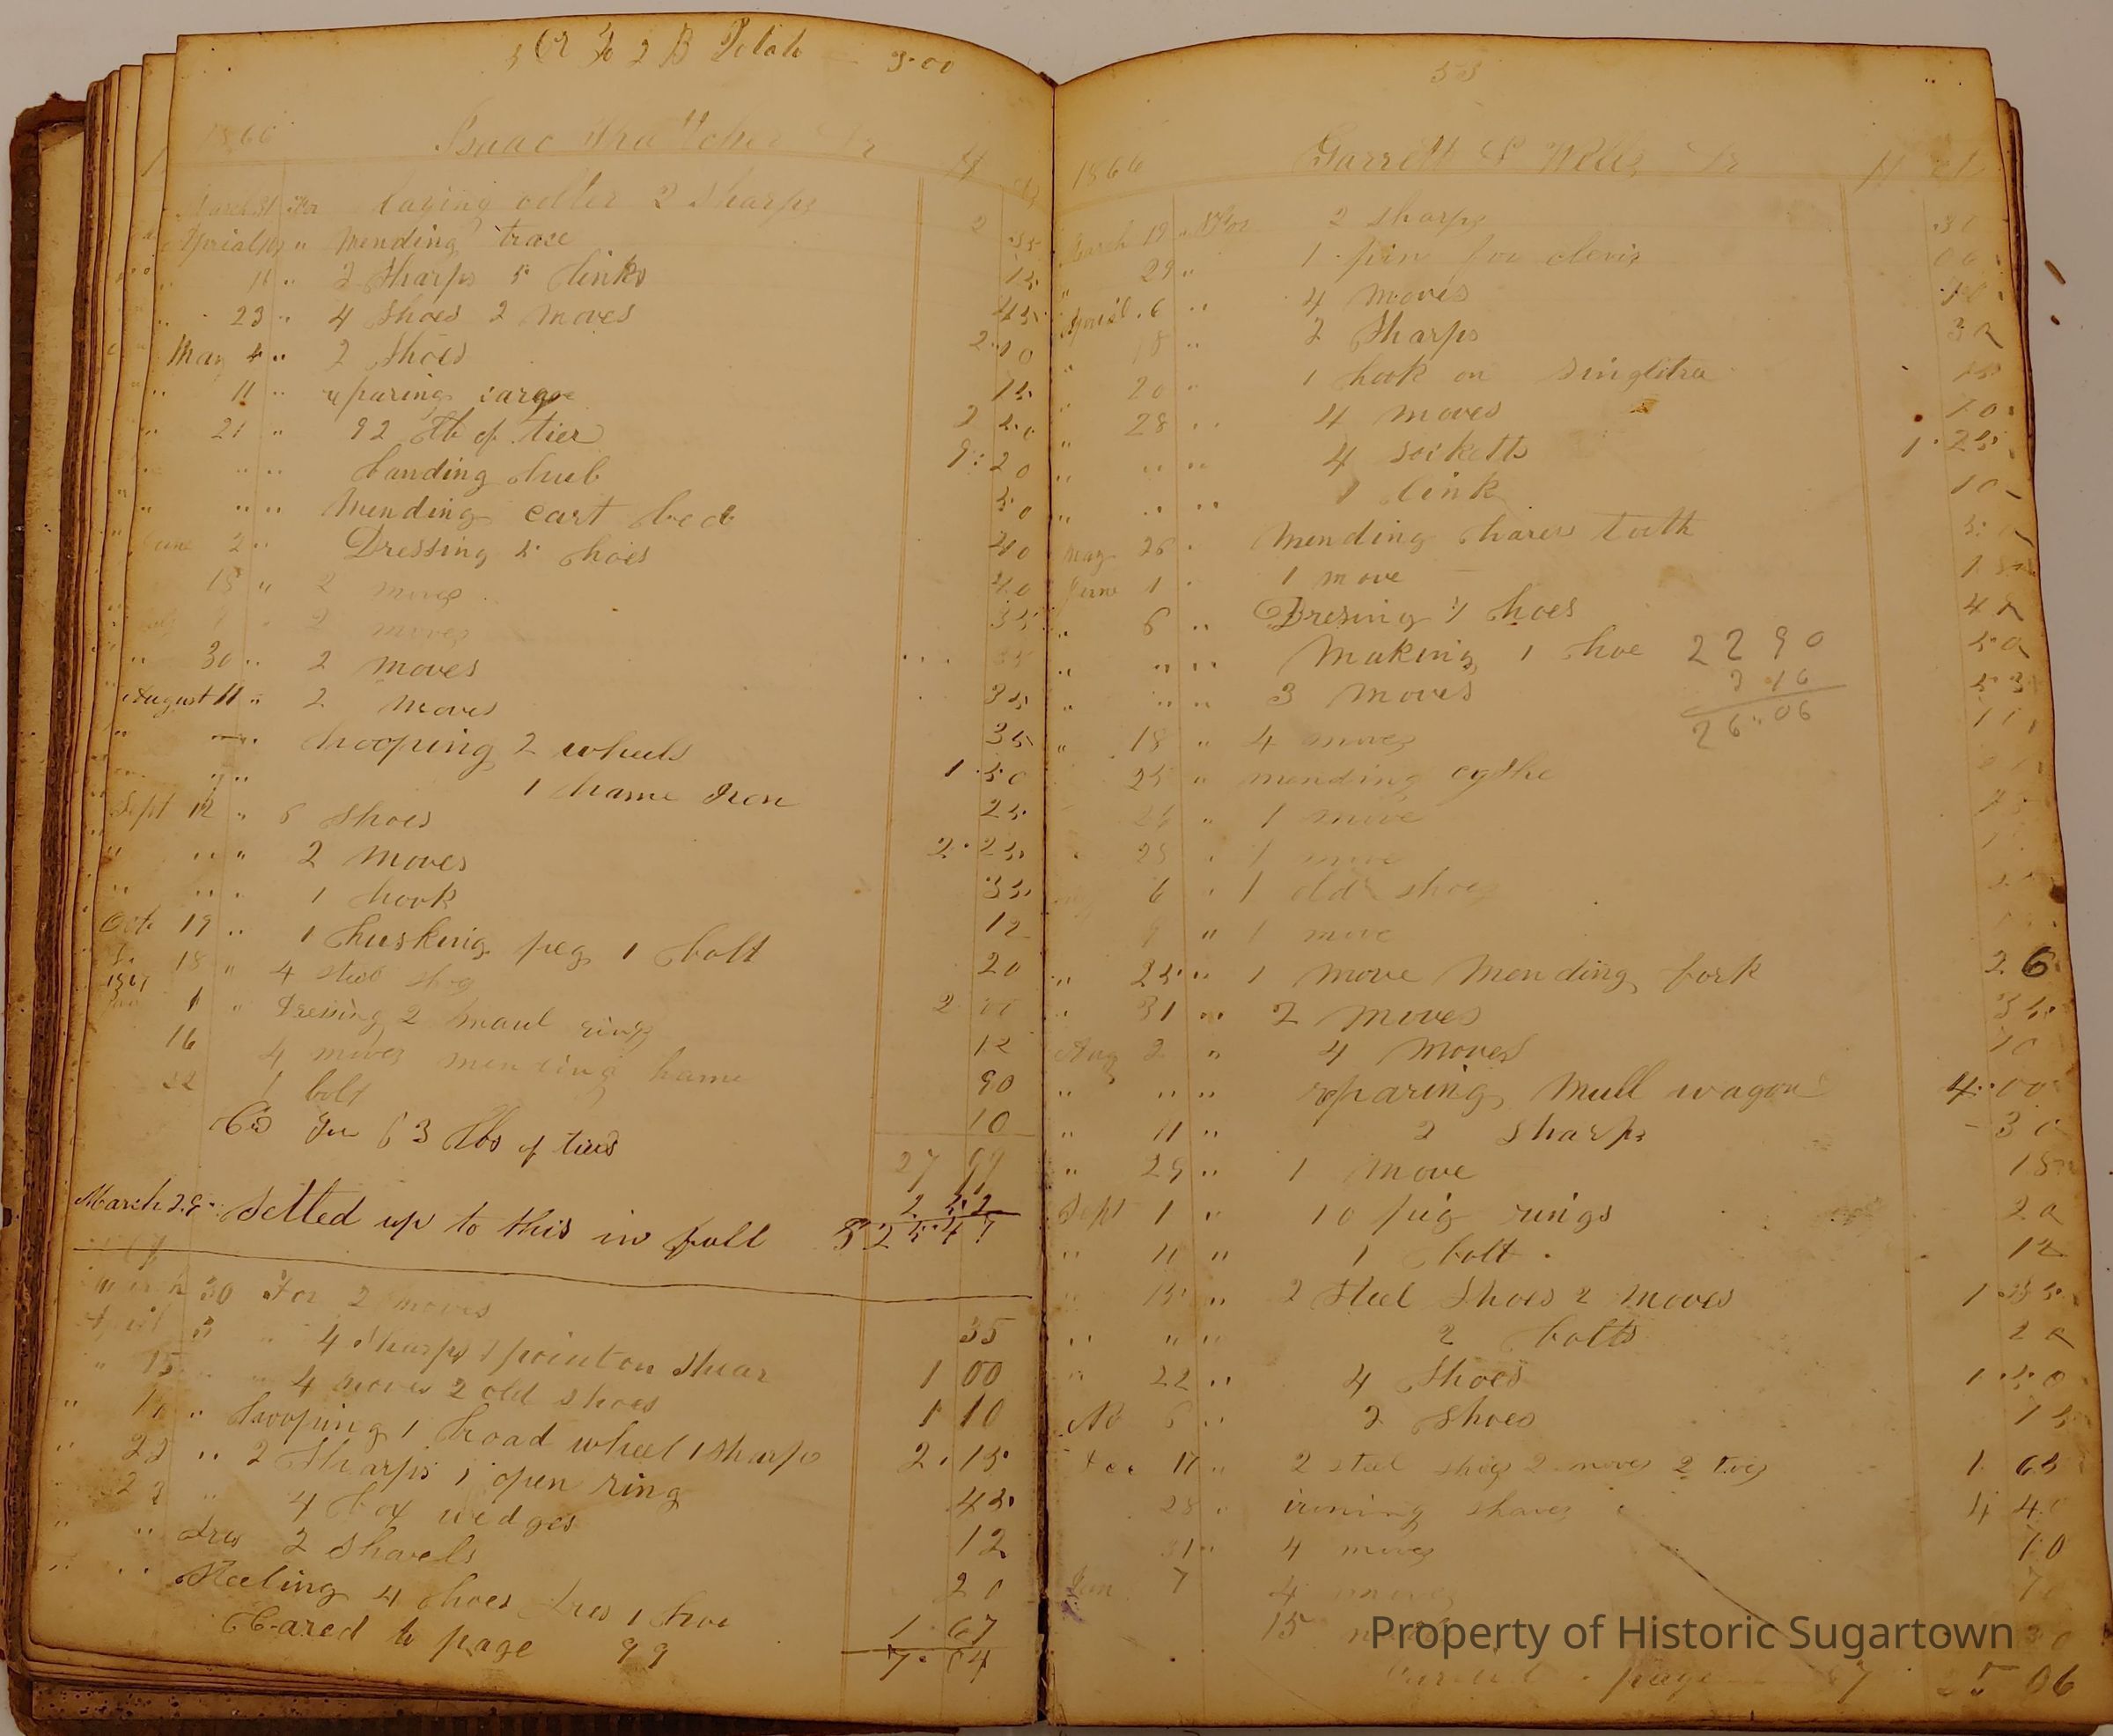 Cr To 2 B Potato — 3.00
1866 Isaac Thatcher Dr
March 31 For laying colter 2 sharps
Aprial " mending trace
2 Sharps 5 links 15
23 " 4 Shoes 2 moves 45
May 4 " 2 Shoes 2.10
" 11 " reparing cargoe 15
" 21 " 92 lb of tier 2 50
" " " banding hub 9:20
" " " Mending cart bed 50
June 2 " Dressing 5 hoes 40
18 " 2 moves 40
2 moves 35
" 30 " 2 moves 35
August 11 " 2 moves 35
" " hooping 2 wheels 35
" " 1 hame Iron 1.50
Sept 12 " 6 shoes 25
" " " 2 moves 2.25
" " " 1 hook 35
Oct 19 " 1 husking peg 1 bolt 12
18 " 4 steel shoes 20
1867
Jan 1 " Dressing 2 maul rings 2 00
16 4 moves mending hame 12
22 1 bolt 90
Cr 63 lbs of tires 10
27 99
2.52
March 28 Setled up to this in full $25.47
67
March 30 For 2 moves 35
April 4 Sharps 1 point on shear 1 00
" 15 " 4 moves 2 old shoes 1 10
" " hooping 1 broad wheel 1 sharp 2.15
" 22 " 2 Sharps 1 open ring 45
22 " 4 box wedges 12
" " Dres 2 shovels 20
" " Steeling 4 hoes dres 1 hoe 1.67
Cared to page 99 7.04
53
1866 Garrett Wells Dr ct
March 19 For 2 sharps 30
" 29 " 1 pin for clevis 06
Aprial 6 " 4 moves 70
" 18 " 2 Sharps 30
" 20 " 1 hook on singletree 15
" 28 " 4 moves 70
" " " 4 socketts 1.25
" " " 1 link 10
May 26 " Mending harrow tooth
June 1 " 1 move
" 6 " Dresing hoes
" " " Making 1 hoe 50 22 90
" " " 3 moves 53 3 16
" 18 " 4 moves 26.06
25 " mending cythe
25 " 1 move
" 25 " 1 move
6 " 1 old shoe
9 " 1 move
" 25 " 1 move Mending fork 26
" 31 " 2 moves 35
Aug 2 " 4 moves 70
" " " reparing Mull wagon 4.00
" 11 " 2 sharps 30
" 29 " 1 move 18
Sept 1 " 10 pig rings 20
" 11 " 1 bolt 12
" 15 " 2 Steel Shoes 2 moves 1.35
" " " 2 bolts 20
" 22 " 4 Shoes 1.50
No 6 " 2 shoes 75
Dec 11 " 2 steel shoes 2 moves 2 toes 1 65
28 " ironing shaves 4 40
31 " 4 moves 70
Jan 7 4 moves 70
15
page 67 25 06
Property of Historic Sugartown